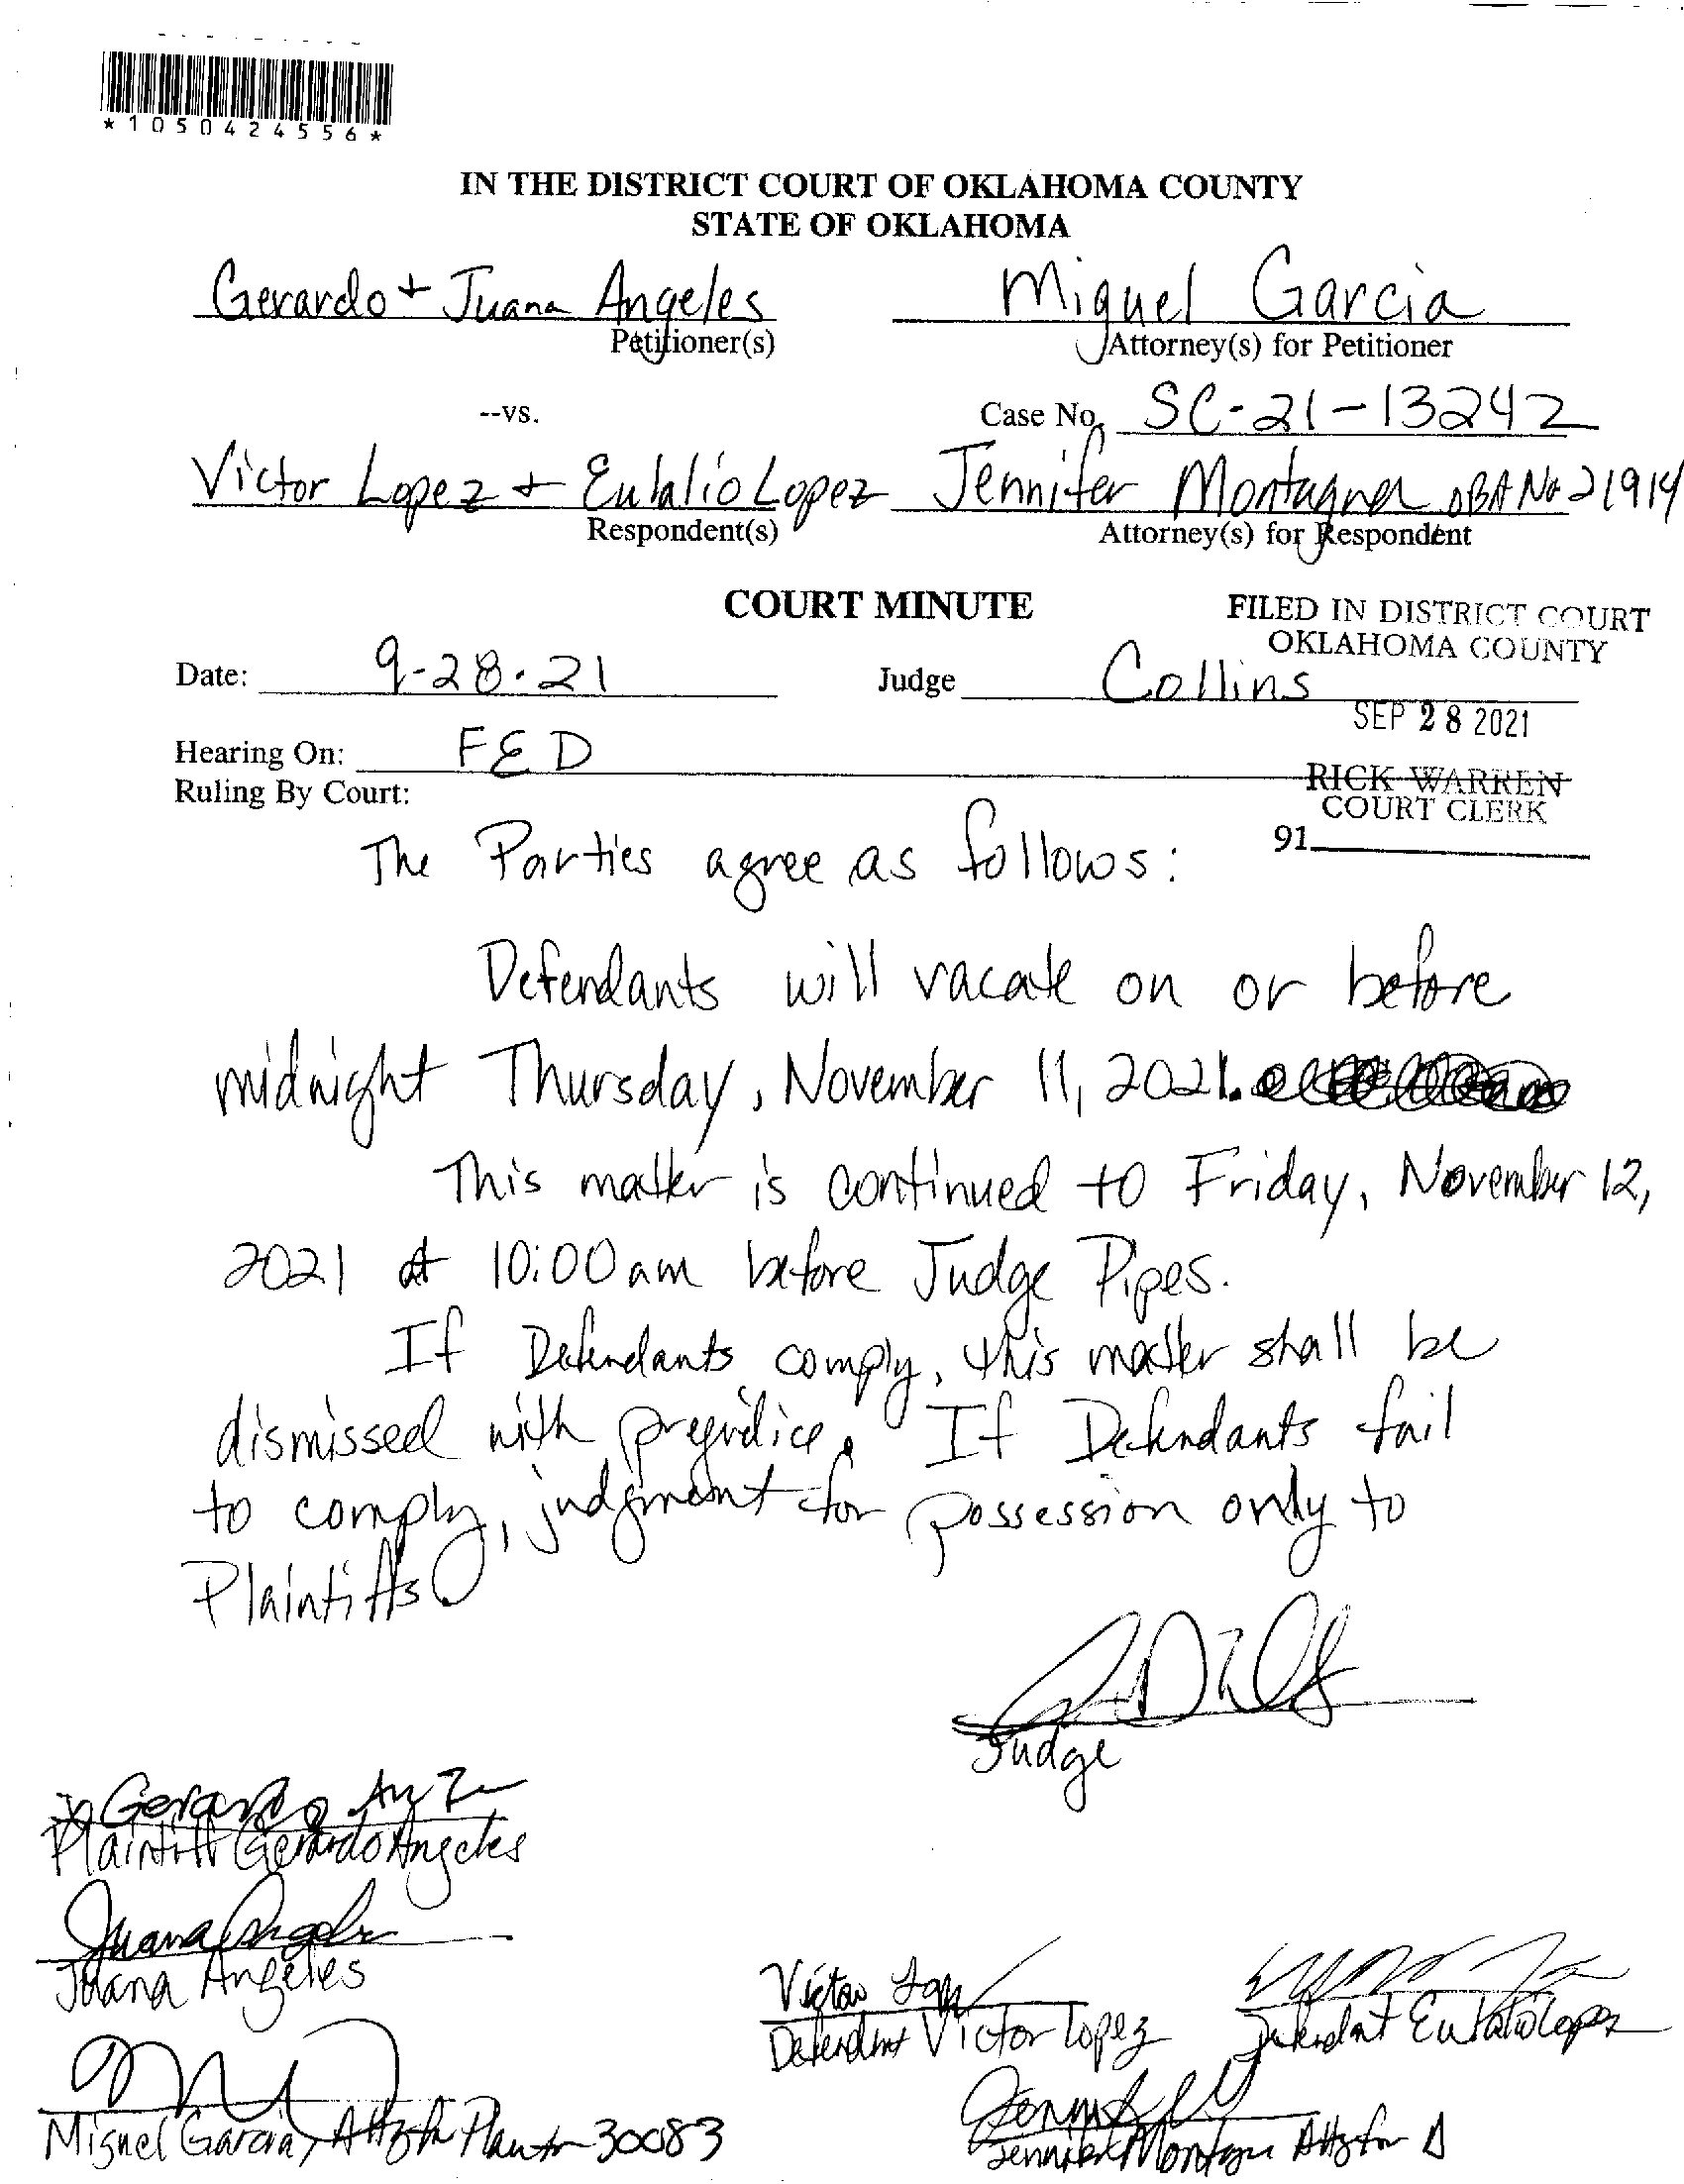 *1050424556*
IN THE DISTRICT COURT OF OKLAHOMA COUNTY
STATE OF OKLAHOMA
Gerardo + Juana Angeles
Petitioner(s)
Miguel Garcia
Attorney(s) for Petitioner
--vs.
Case No. SC-21-13242
Victor Lopez + Eulalio Lopez
Respondent(s)
Jennifer Montagna OBA No 21914
Attorney(s) for Respondent
COURT MINUTE
FILED IN DISTRICT COURT
OKLAHOMA COUNTY
Date: 9-28-21
Judge Collins
SEP 28 2021
Hearing On: FED
RICK WARREN
COURT CLERK
Ruling By Court:
91
The Parties agree as follows:
Defendants will vacate on or before
midnight Thursday, November 11, 2021.
This matter is continued to Friday, November 12,
2021 at 10:00 am before Judge Pipes.
If Defendants comply, this matter shall be
dismissed with prejudice. If Defendants fail
to comply, judgment for possession only to
Plaintiffs.
Judge
Gerardo
Plaintiff Gerardo Angeles
Juana Angeles
Juana Angeles
Miguel Garcia, Atty for Plaintiff 30083
Victor
Defendant Victor Lopez
Defendant Eulalio Lopez
Jennifer Montagna Atty for Δ